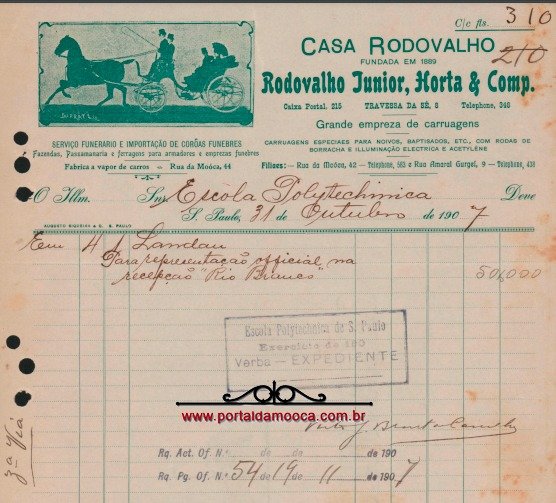 C/c fls. 310
210
CASA RODOVALHO
FUNDADA EM 1889
Rodovalho Junior, Horta & Comp.
Caixa Postal, 215 TRAVESSA DA SÉ, 8 Telephone, 348
Grande empreza de carruagens
CARRUAGENS ESPECIAES PARA NOIVOS, BAPTISADOS, ETC., COM RODAS DE
BORRACHA E ILLUMINAÇÃO ELECTRICA E ACETYLÉNE
Filiaes: — Rua da Moóca, 42 — Telephone, 563 e Rua Amaral Gurgel, 9 — Telephone, 438
SERVIÇO FUNERARIO E IMPORTAÇÃO DE CORÔAS FUNEBRES
Fazendas, Passamanaria e ferragens para armadores e emprezas funebres
Fabrica a vapor de carros — Rua da Moóca, 44
O Illm. Snr. Escola Polytechinica Deve
S. Paulo, 31 de Outubro de 1907
AUGUSTO SIQUEIRA & C. S. PAULO
Em 4 1 Landau
Para representação official na
recepção "Rio Branco" 50$000
Escola Polytechnica de S. Paulo
Exercicio de 190
Verba — EXPEDIENTE
www.portaldamooca.com.br
Rq. Act. Of. N.º de de 190
Rq. Pg. Of. N.º 54 de 19 de 11 de 1907
3ª Via